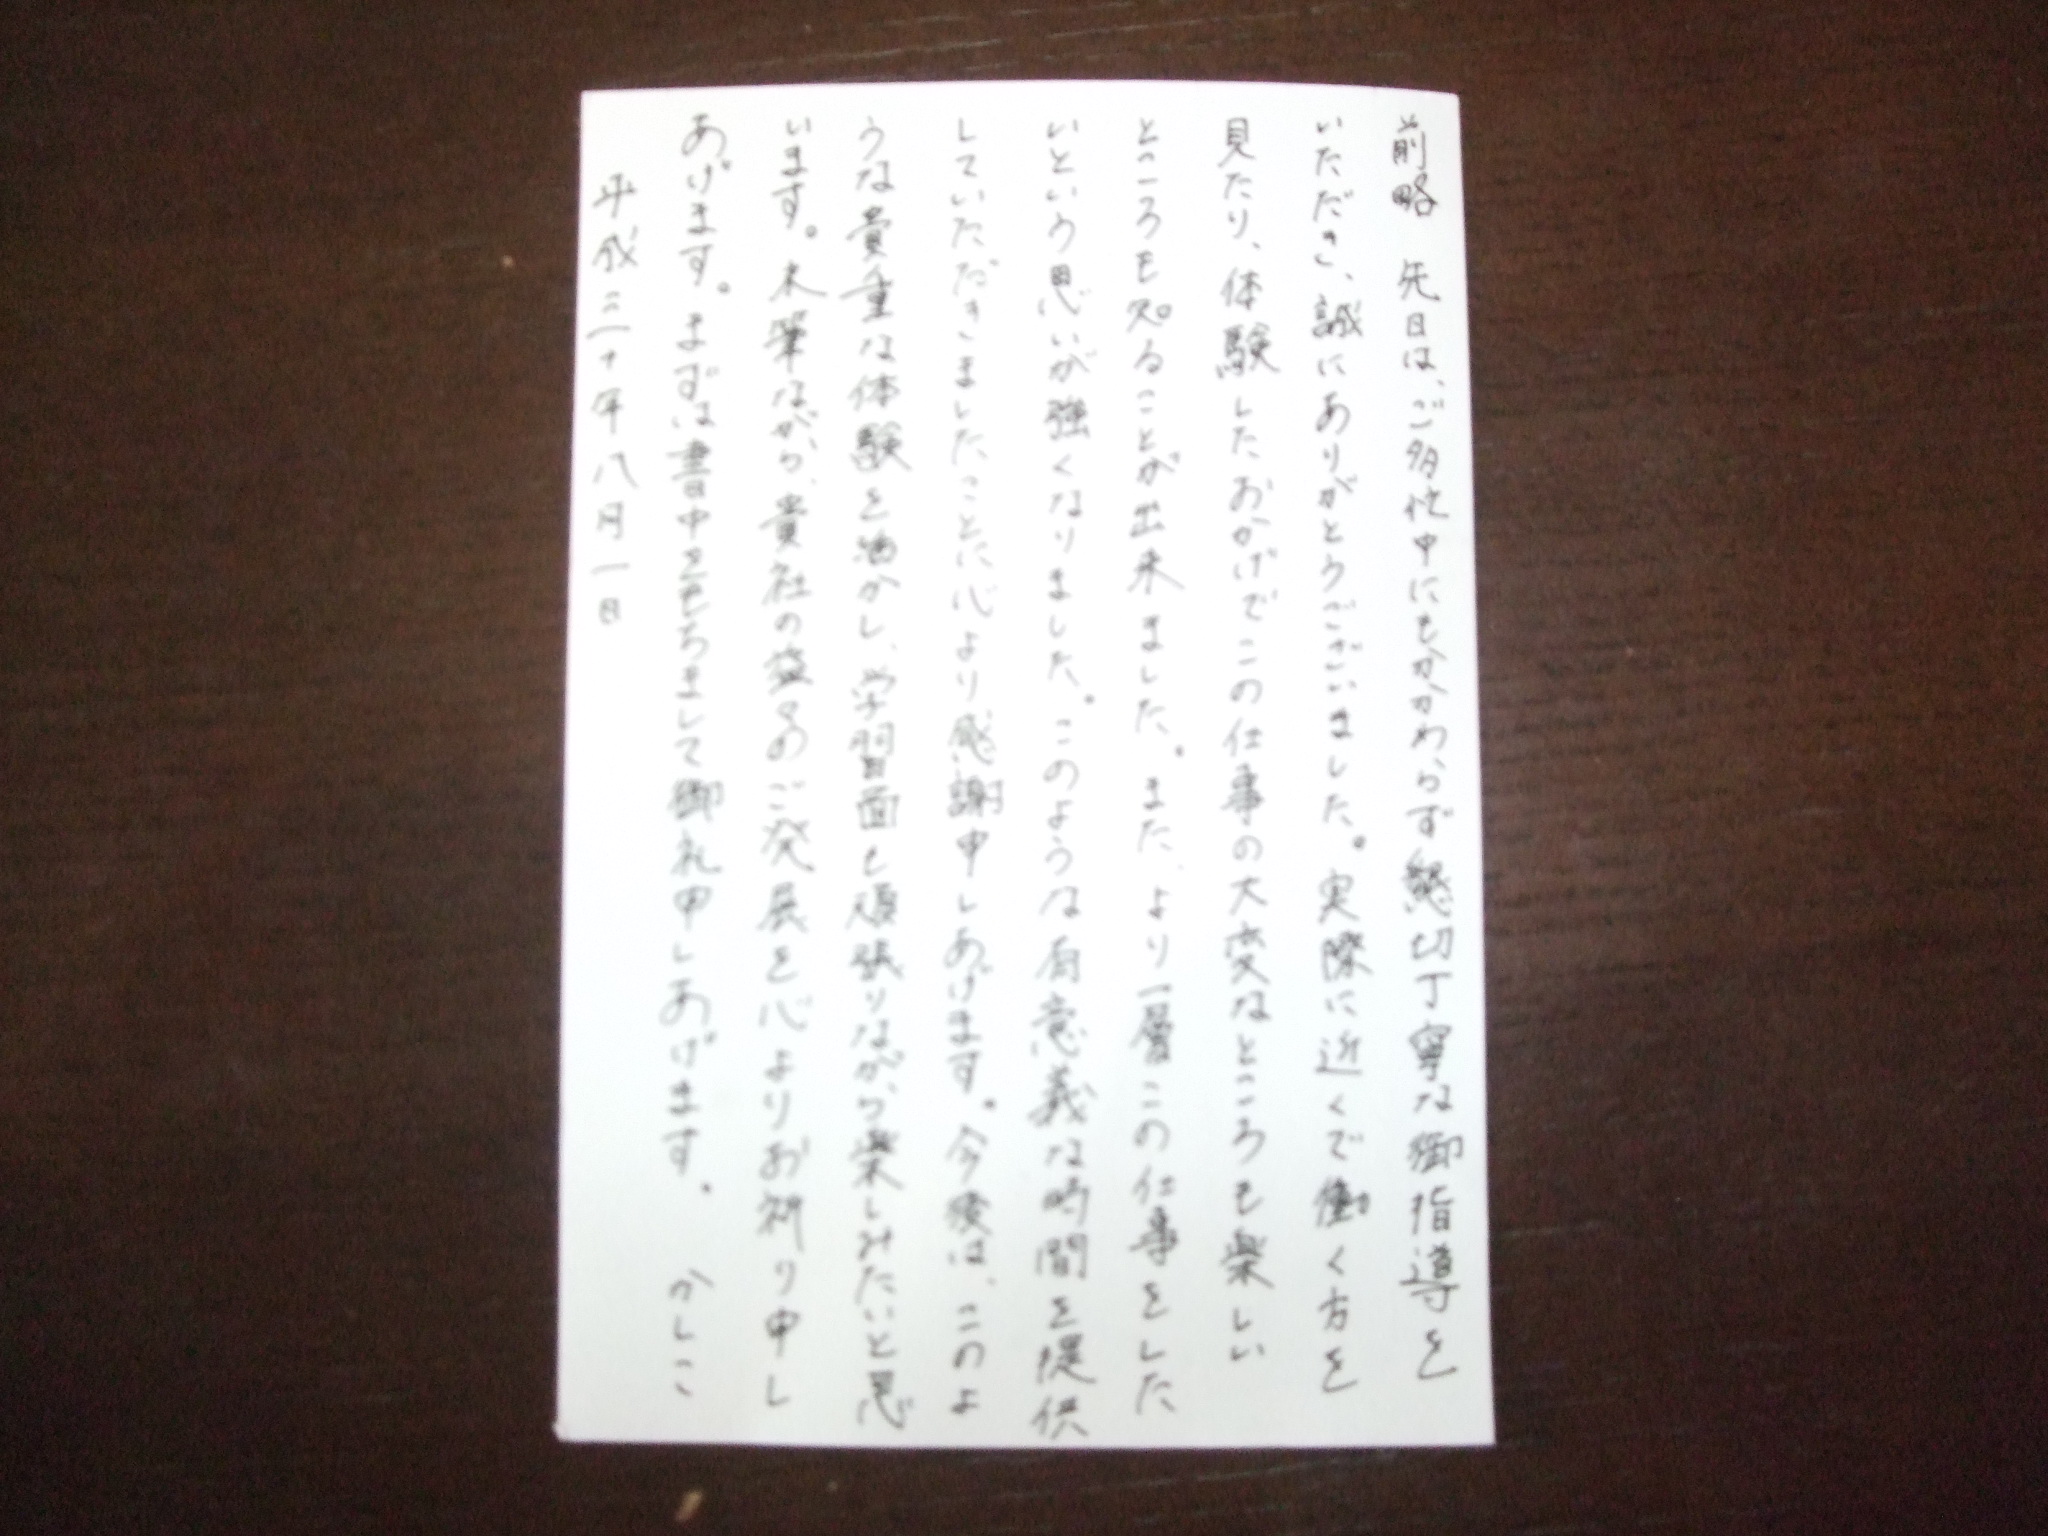 前略　先日は、ご多忙中にもかかわらず懇切丁寧な御指導を
いただき、誠にありがとうございました。実際に近くで働く方を
見たり、体験したおかげでこの仕事の大変なところも楽しい
ところも知ることが出来ました。また、より一層この仕事をした
いという思いが強くなりました。このような有意義な時間を提供
していただきましたことに心より感謝申しあげます。今後は、このよ
うな貴重な体験を活かし、学習面も頑張りながら楽しみたいと思
います。末筆ながら、貴社の益々のご発展を心よりお祈り申し
あげます。まずは書中をもちまして御礼申しあげます。　かしこ
平成二十年八月一日